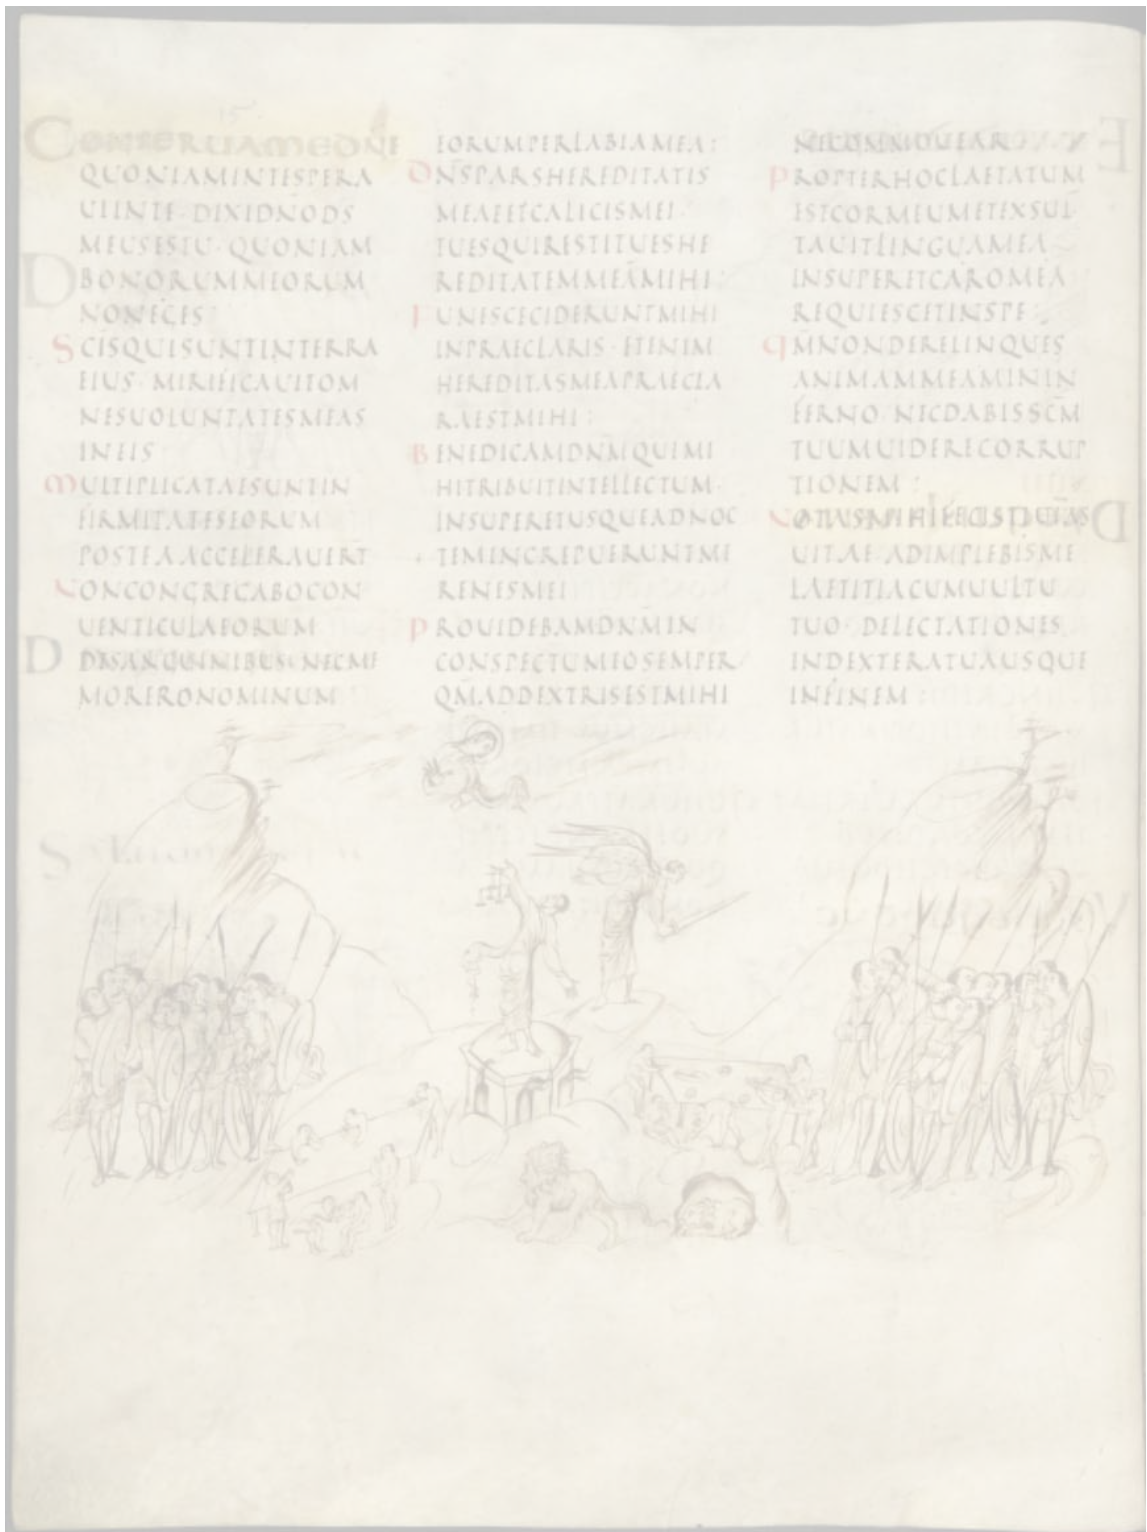 CONSERUAMEDNE
QUONIAMINTESPERA
UIINTE · DIXIDÑODS
MEUSESTU · QUONIAM
BONORUMMEORUM
NONEGES
SCISQUISUNTINTERRA
EIUS · MIRIFICAUITOM
NESUOLUNTATESMEAS
INEIS
MULTIPLICATAESUNTIN
FIRMITATESEORUM
POSTEAACCELERAUERT̄
NONCONGREGABOCON
UENTICULAEORUM
DESANGUINIBUS · NECME
MORERONOMINUM
EORUMPERLABIAMEA :
DN̄SPARSHEREDITATIS
MEAEETCALICISMEI ·
TUESQUIRESTITUESHE
REDITATEMMEĀMIHI :
FUNESCECIDERUNTMIHI
INPRAECLARIS · ETENIM
HEREDITASMEAPRAECLA
RAESTMIHI :
BENEDICAMDNM̄QUIMI
HITRIBUITINTELLECTUM ·
INSUPERETUSQUEADNOC
TEMINCREPUERUNTME
RENESMEI
PROUIDEBAMDNM̄IN
CONSPECTUMEOSEMPER
QM̄ADDEXTRISESTMIHI
NECOMMOUEAR
PROPTERHOCLAETATUM
ESTCORMEUMETEXSUL
TAUITLINGUAMEA
INSUPERETCAROMEA
REQUIESCETINSPE :
QM̄NONDERELINQUES
ANIMAMMEAMININ
FERNO · NECDABISSCM̄
TUUMUIDERECORRUP
TIONEM :
NOTASMIHIFECISTIUIAS
UITAE · ADIMPLEBISME
LAETITIACUMUULTU
TUO · DELECTATIONES
INDEXTERATUAUSQUE
INFINEM :